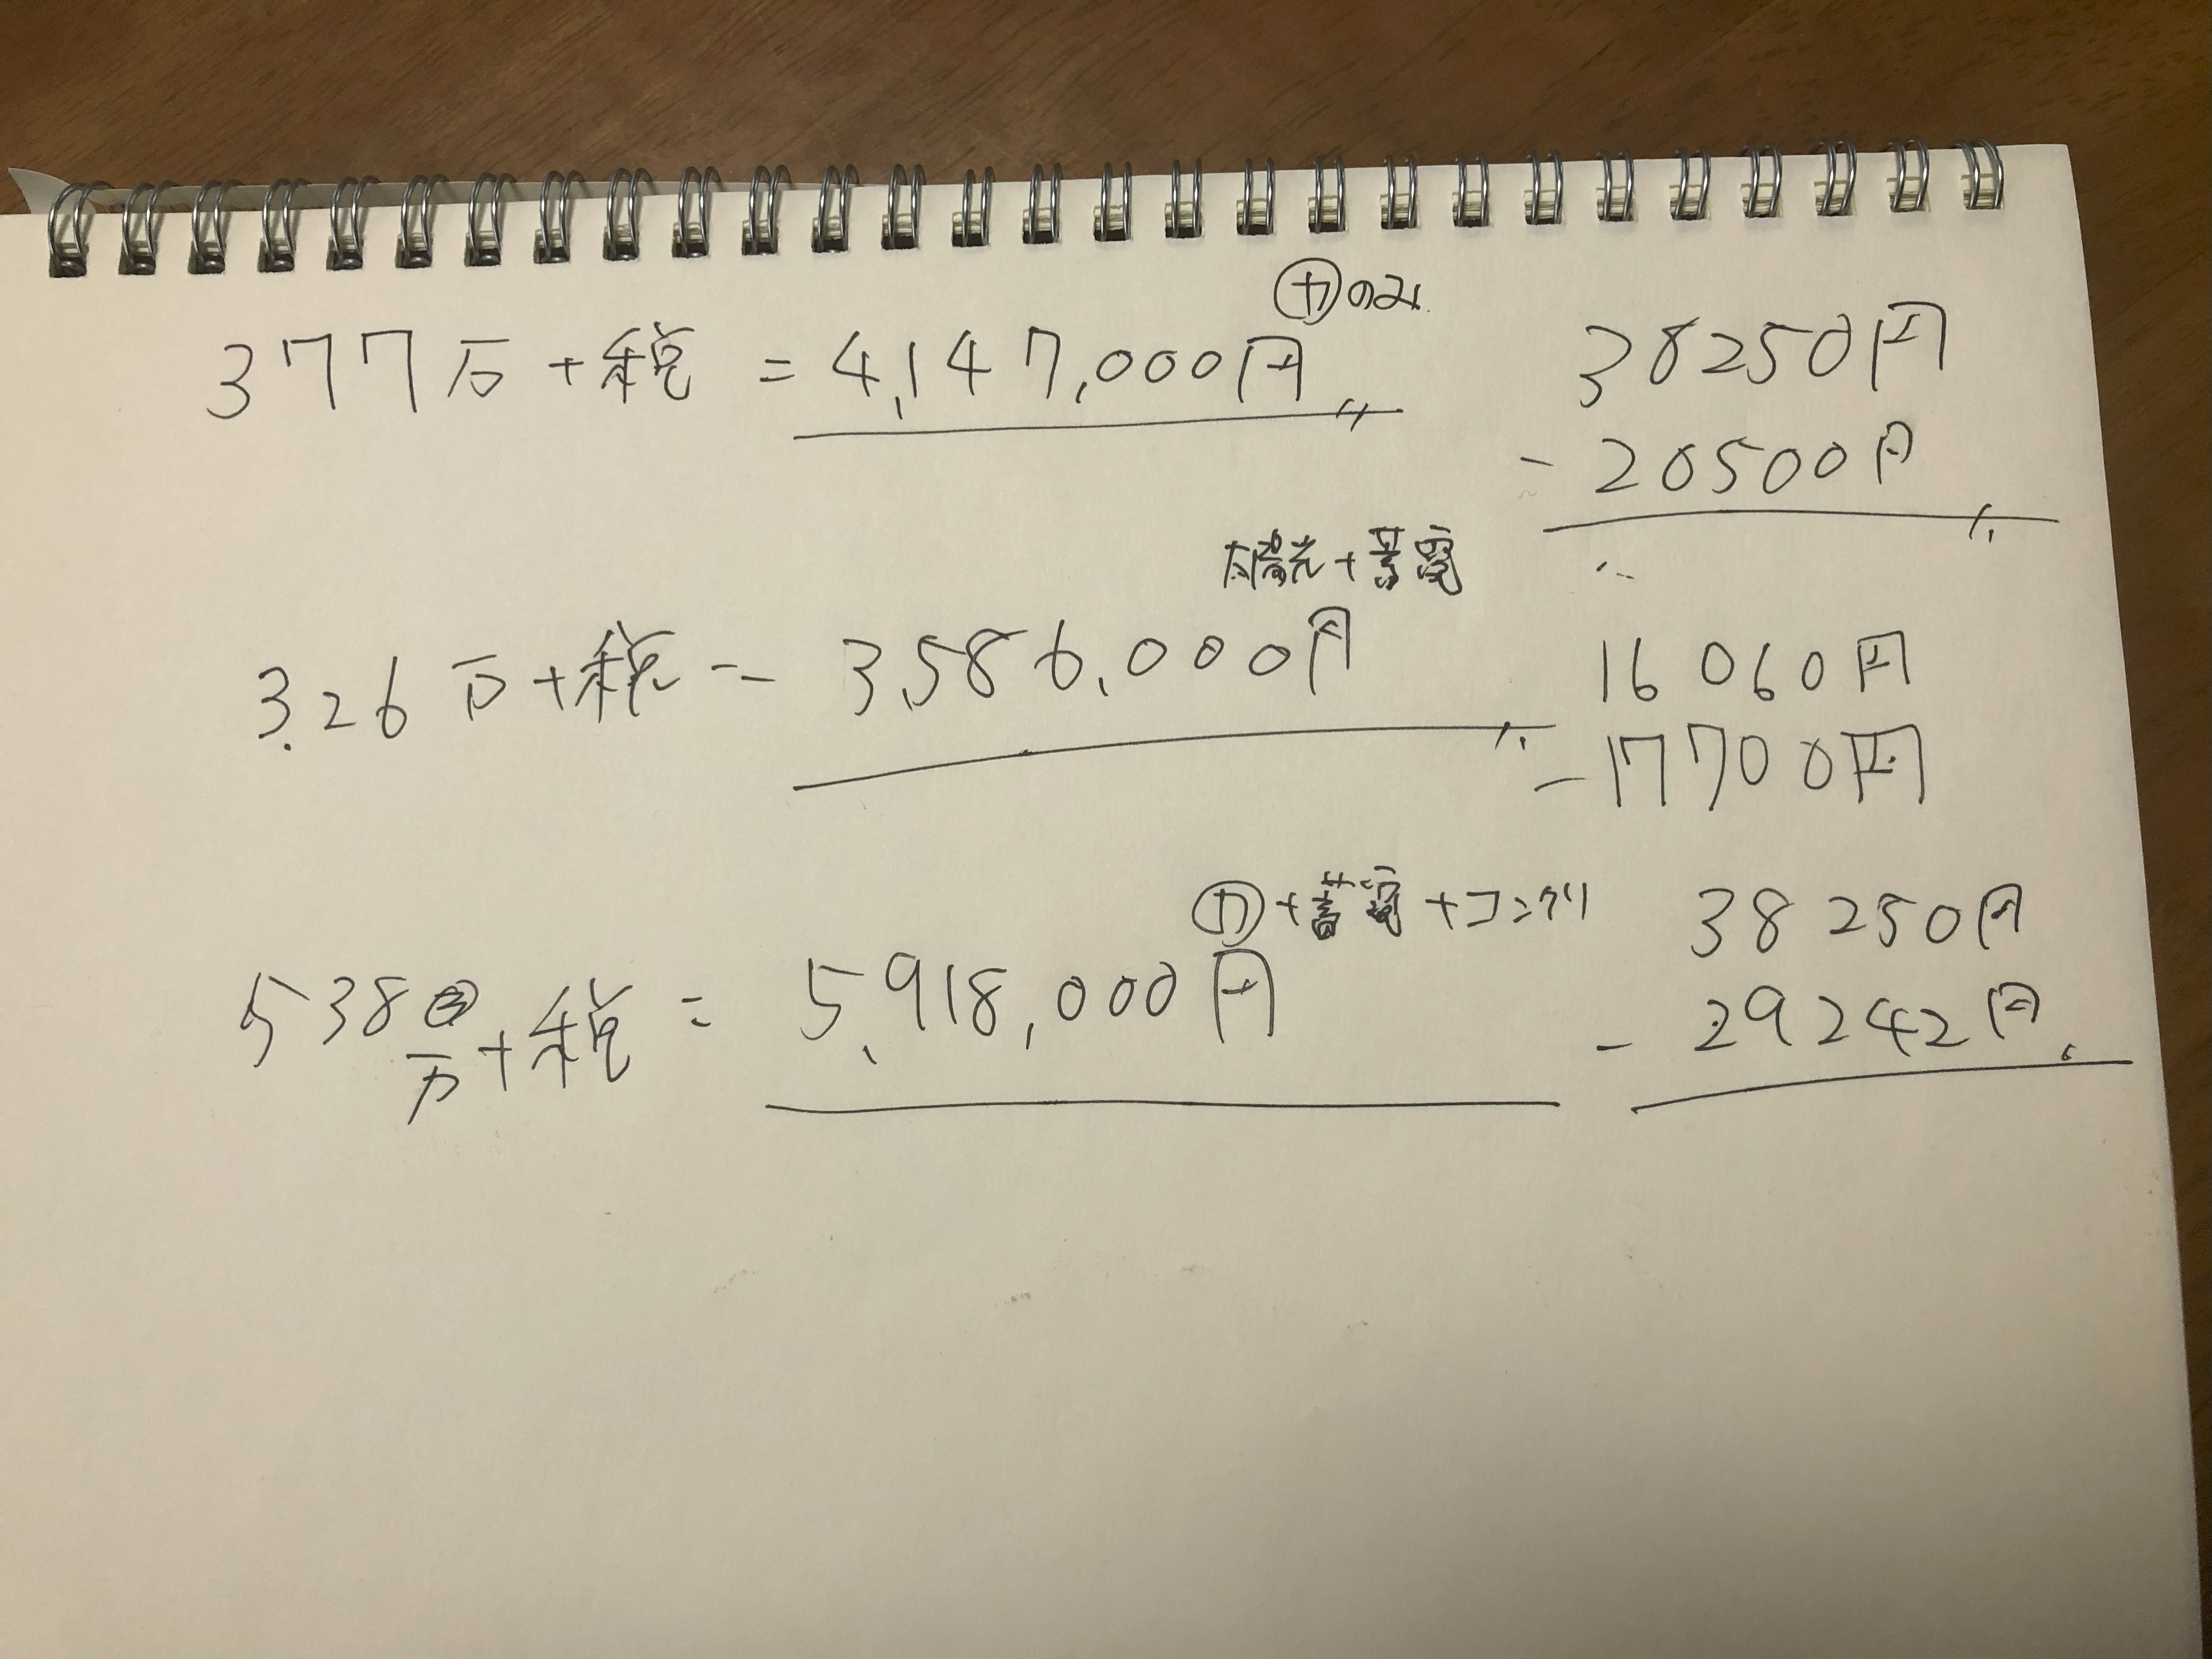 ㋕のみ
377万+税=4,147,000円
38250円
-20500円
太陽光+蓄電
3.26万+税=3,586,000円
16060円
-17700円
㋕+蓄電+コンクリ
538万+税=5,918,000円
38250円
-29242円